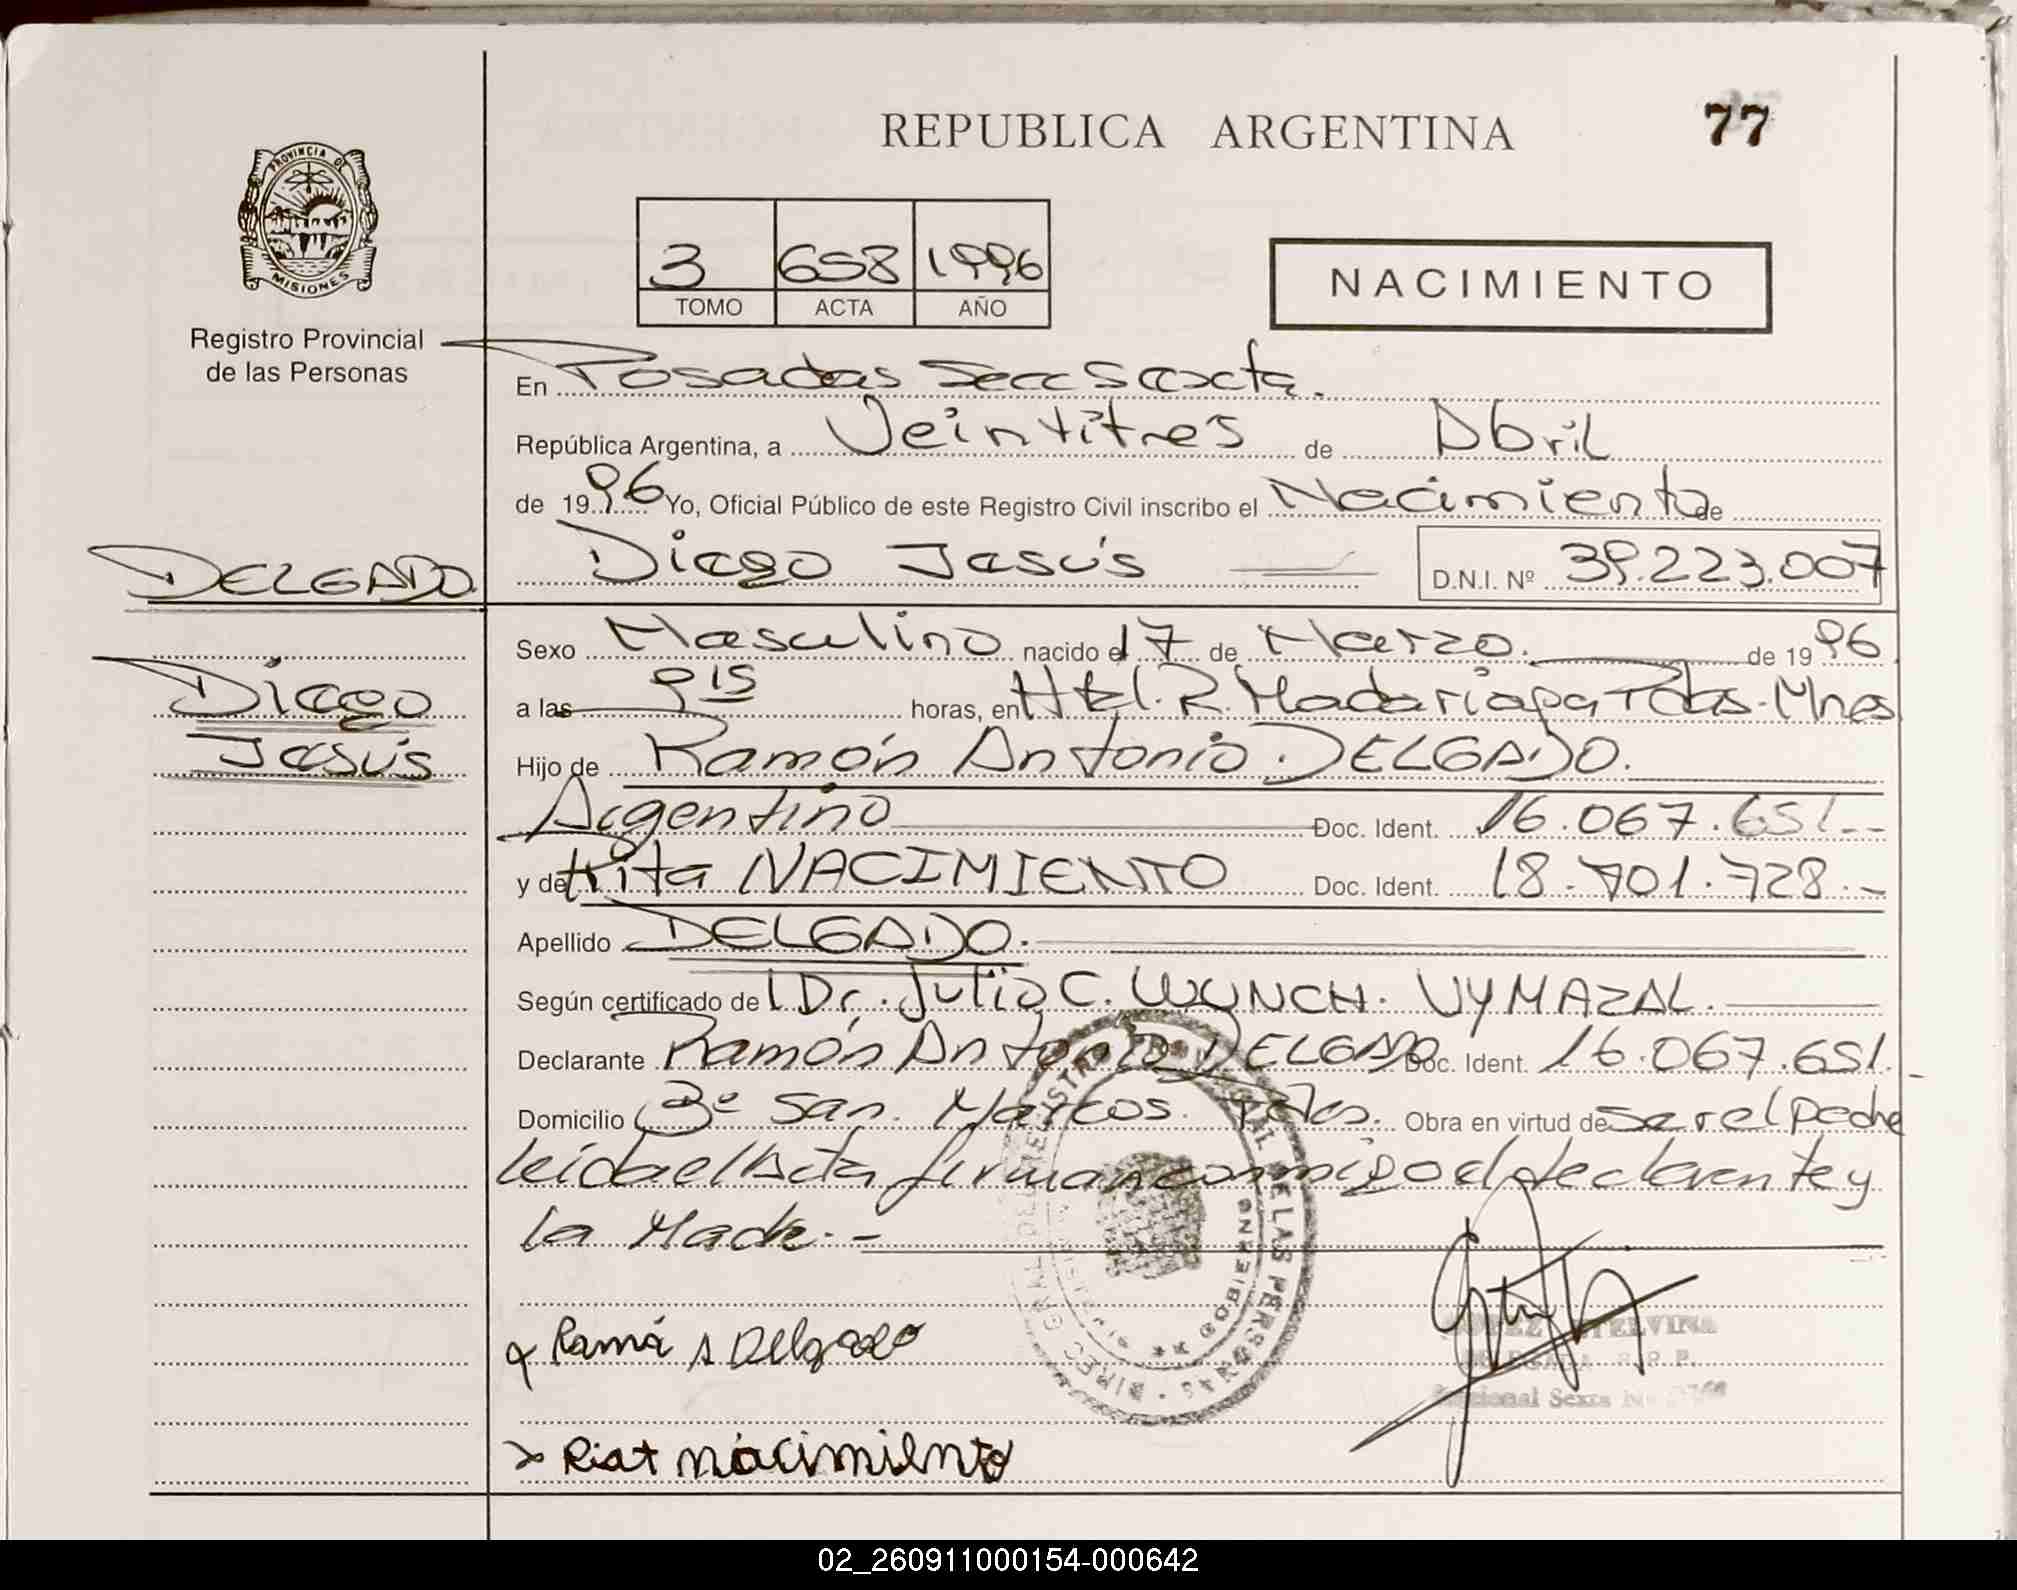 REPUBLICA ARGENTINA
77
PROVINCIA DE
MISIONES
Registro Provincial
de las Personas
3 658 1996
TOMO ACTA AÑO
NACIMIENTO
En Posadas Secc Sexta.
República Argentina, a Veintitrés de Abril
de 1996 Yo, Oficial Público de este Registro Civil inscribo el Nacimiento de
DELGADO
Diego Jesús D.N.I. Nº 39.223.007
Diego
Jesús
Sexo Masculino nacido el 17 de Marzo. de 1996
a las 9 15 horas, en Htal. R. Madariaga Pdas. Mnes
Hijo de Ramón Antonio DELGADO.
Argentino Doc. Ident. 16.067.651.-
y de Rita NACIMIENTO Doc. Ident. 18.701.728.-
Apellido DELGADO.
Según certificado de l Dr. Julio C. WUNCH. VYMAZAL.
Declarante Ramón Antonio DELGADO Doc. Ident. 16.067.651.
Domicilio 3º San Marcos. Pdas. Obra en virtud de ser el padre
leida el Acta firman conmigo el declarante y
la Madre.-
Ramó A Delgado
Riat nacimiento
LOPEZ ETELVINA
DELEGADA R.R.P.
Seccional Sexta
02_260911000154-000642